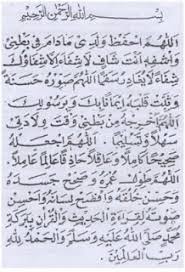 بِسْمِ اللهِ الرَّحْمٰنِ الرَّحِيْمِ
اَللّٰهُمَّ احْفَظْ وَلَدِيْ مَادَامَ فِيْ بَطْنِيْ
وَاشْفِهِ اَنْتَ شَافٍ لَا شِفَاءَ اِلَّا شِفَاؤُكَ
شِفَاءً لَا يُغَادِرُ سَقَمًا اَللّٰهُمَّ صَوِّرْهُ حَسَنَةً
وَثَبِّتْ قَلْبَهُ اِيْمَانًا بِكَ وَبِرَسُوْلِكَ
اَللّٰهُمَّ اَخْرِجْهُ مِنْ بَطْنِيْ وَقْتَ وِلَادَتِيْ
سَهْلًا وَتَسْلِيْمًا اَللّٰهُمَّ اجْعَلْهُ
صَحِيْحًا كَامِلًا وَعَاقِلًا حَاذِقًا عَالِمًا عَامِلًا
اَللّٰهُمَّ طَوِّلْ عُمُرَهُ وَصَحِّحْ جَسَدَهُ
وَحَسِّنْ خُلُقَهُ وَافْصَحْ لِسَانَهُ وَاَحْسِنْ
صَوْتَهُ لِقِرَاءَةِ الْحَدِيْثِ وَالْقُرْآنِ بِبَرَكَةِ
مُحَمَّدٍ صَلَّى اللهُ عَلَيْهِ وَسَلَّمَ وَالْحَمْدُ لِلّٰهِ
رَبِّ الْعَالَمِيْنَ